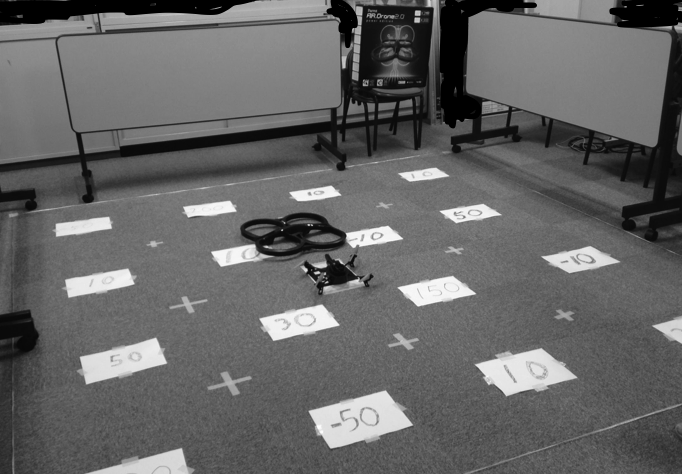 AR.Drone2.0
10
10
50
10
-10
-10
10
150
30
50
10
-50